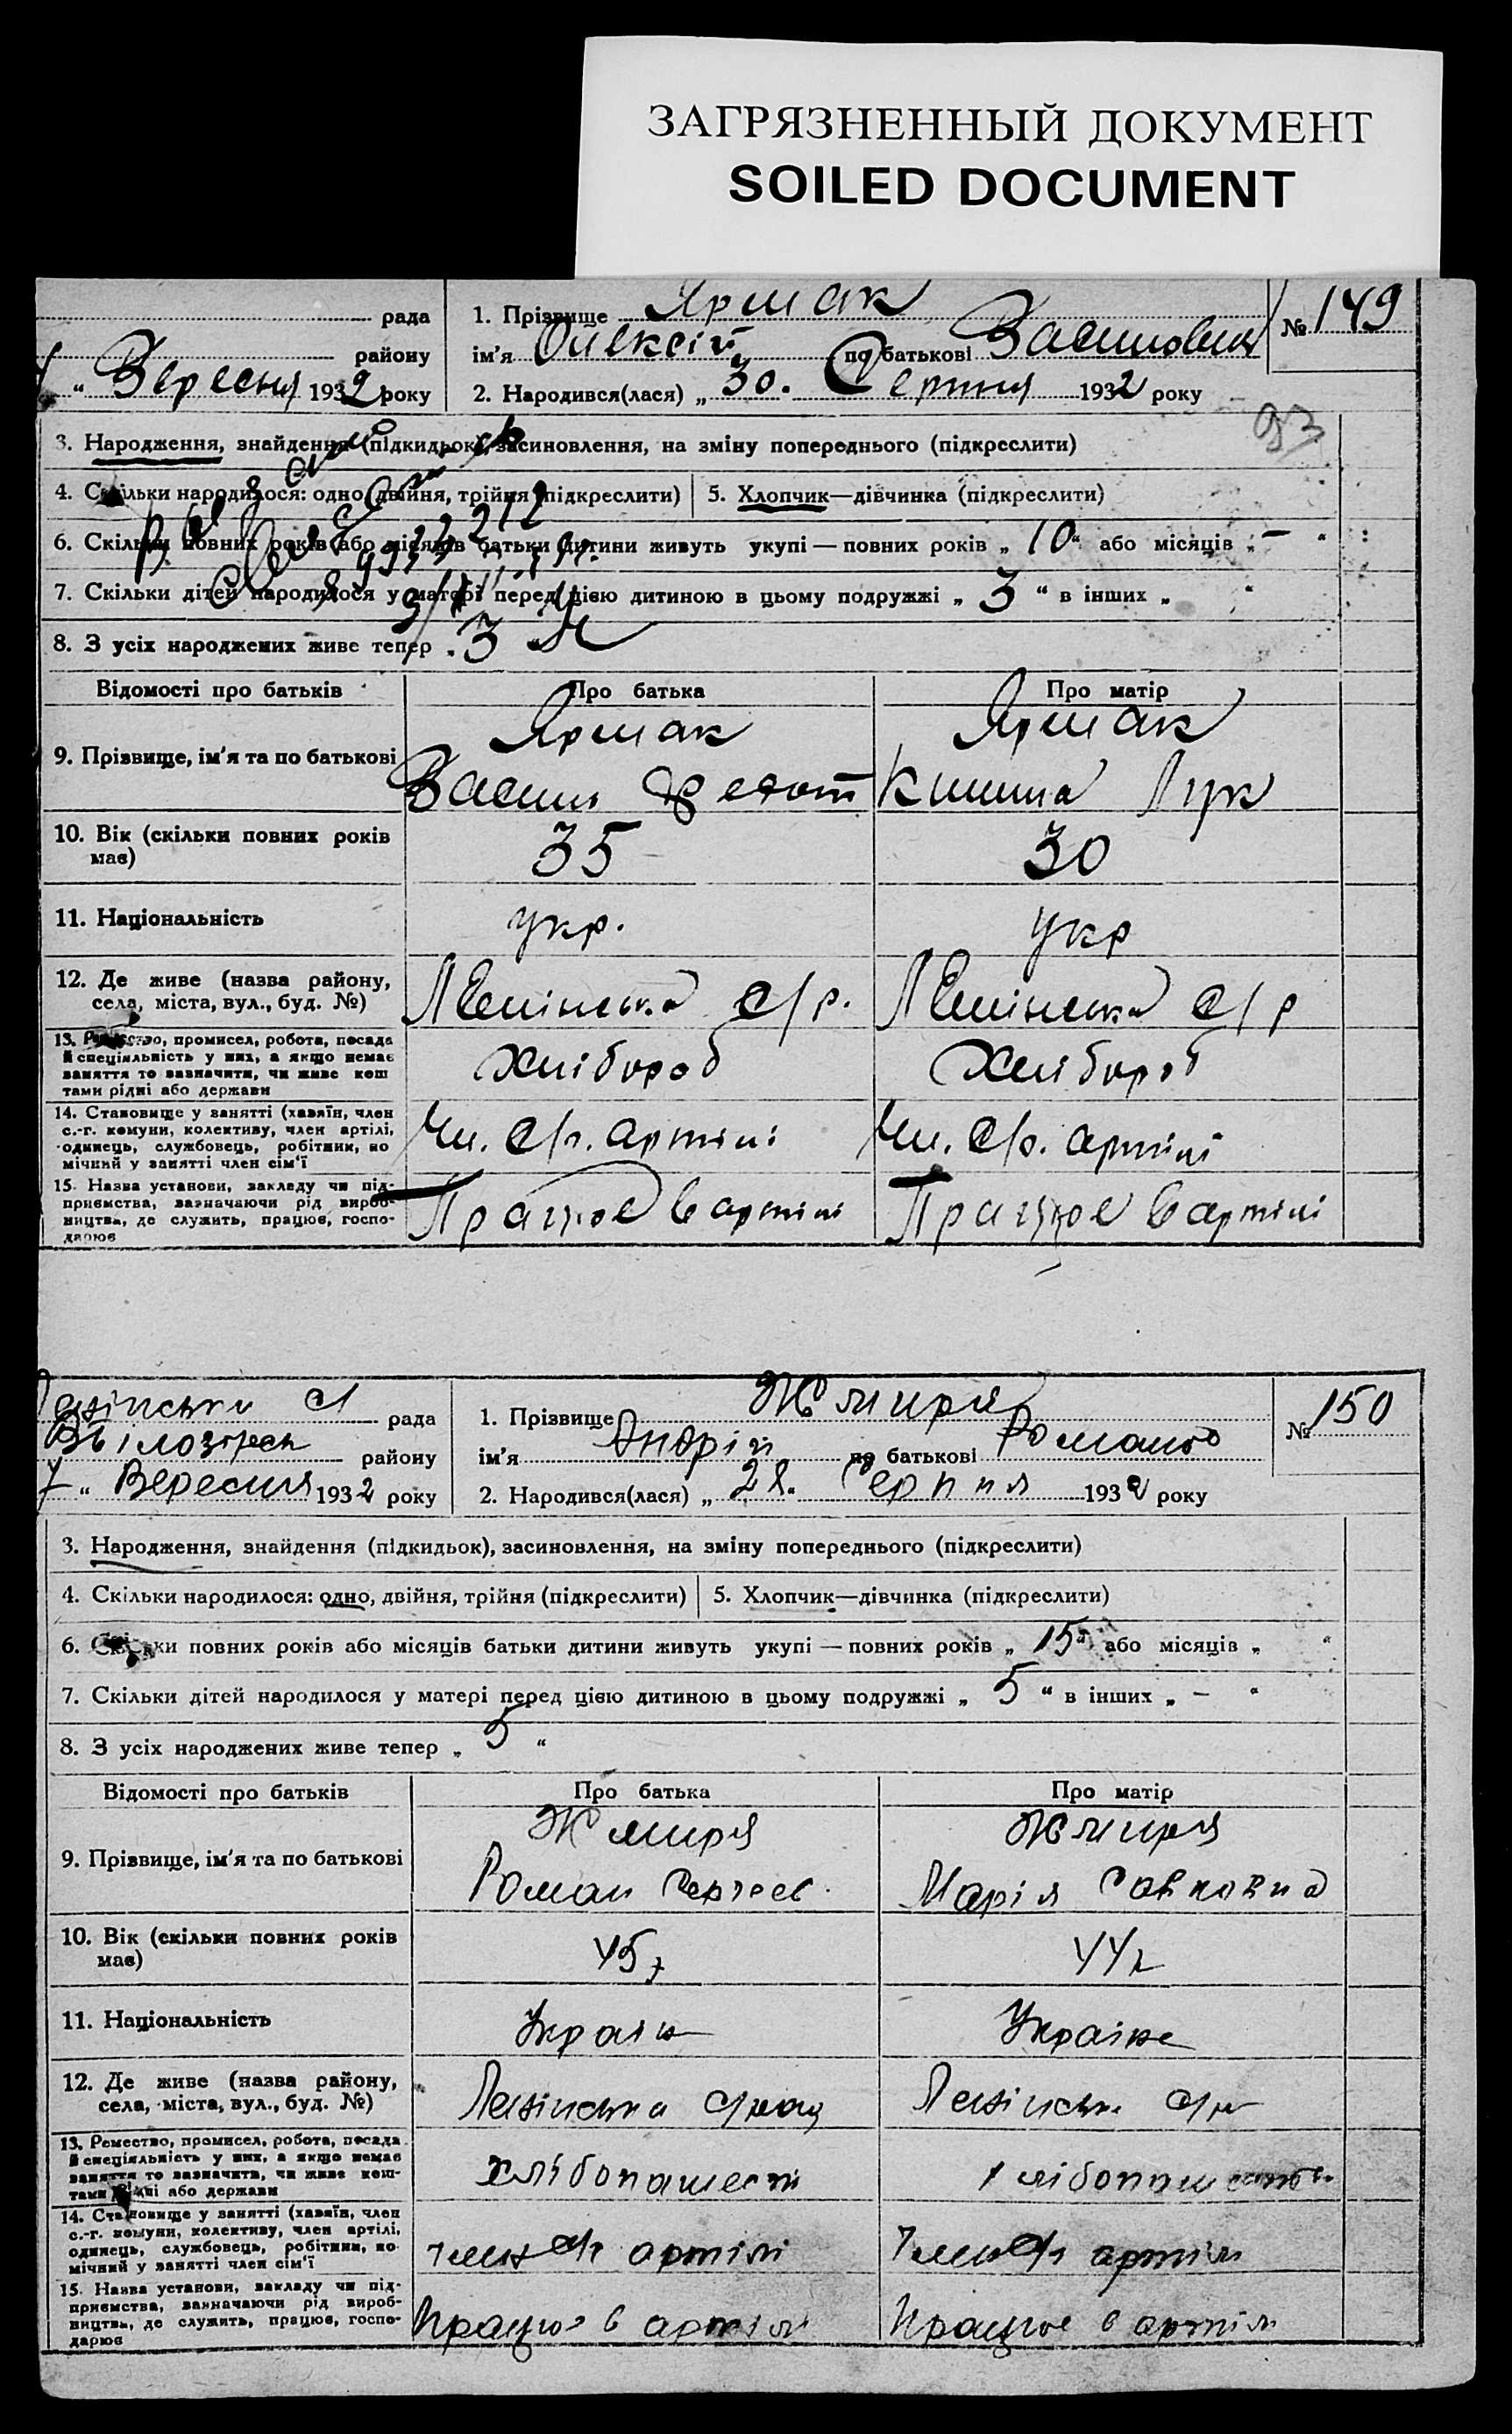 ЗАГРЯЗНЕННЫЙ ДОКУМЕНТ
SOILED DOCUMENT
рада
району
" Вересня 1932 року
1. Прізвище Ярмак
ім'я Олексій по батькові
2. Народився(лася) „ 30. Серпня 1932 року
№ 149
93
3. Народження, знайдення (підкидьок), засиновлення, на зміну попереднього (підкреслити)
4. Скільки народилося: одно, двійня, трійня (підкреслити) 5. Хлопчик—дівчинка (підкреслити)
6. Скільки повних років або місяців батьки дитини живуть укупі — повних років „ 10 " або місяців „ — "
7. Скільки дітей народилося у матері перед цією дитиною в цьому подружжі „ 3 " в інших „ "
8. З усіх народжених живе тепер „ 3 "
Відомості про батьків Про батька Про матір
9. Прізвище, ім'я та по батькові
Ярмак Ярмак
Василь Федот Лук
10. Вік (скільки повних років має) 35 30
11. Національність укр. укр
12. Де живе (назва району, села, міста, вул., буд. №) Ленінська с/р. Ленінська с/р
13. Ремество, промисел, робота, посада й спеціяльність у них, а якщо немає заняття то зазначити, чи живе кош тами рідні або держави Хлібороб Хлібороб
14. Становище у занятті (хазяїн, член с.-г. комуни, колективу, член артілі, одинець, службовець, робітник, помічний у занятті член сім'ї Чл. с/г. артілі Чл. с/г. артілі
15. Назва установи, закладу чи підприємства, зазначаючи рід виробництва, де служить, працює, господарює Працює в артілі Працює в артілі
Ленінськи с/ рада
Білозірськ району
7 " Вересня 1932 року
1. Прізвище Жмиря
ім'я Андрій по батькові Романов
2. Народився(лася) „ 28. Серпня 1932 року
№ 150
3. Народження, знайдення (підкидьок), засиновлення, на зміну попереднього (підкреслити)
4. Скільки народилося: одно, двійня, трійня (підкреслити) 5. Хлопчик—дівчинка (підкреслити)
6. Скільки повних років або місяців батьки дитини живуть укупі — повних років „ 15 " або місяців „ "
7. Скільки дітей народилося у матері перед цією дитиною в цьому подружжі „ 5 " в інших „ — "
8. З усіх народжених живе тепер „ 5 "
Відомості про батьків Про батька Про матір
9. Прізвище, ім'я та по батькові
Жмиря Жмиря
Роман Сергеев. Марія Савковна
10. Вік (скільки повних років має) 45 44
11. Національність Україн Україне
12. Де живе (назва району, села, міста, вул., буд. №) Ленінська с/рад Ленінськ с/р
13. Ремество, промисел, робота, посада й спеціяльність у них, а якщо немає заняття то зазначити, чи живе коштами рідні або держави хлібопашест
14. Становище у занятті (хазяїн, член с.-г. комуни, колективу, член артілі, одинець, службовець, робітник, помічний у занятті член сім'ї член с/г артілі член с/г артілі
15. Назва установи, закладу чи підприємства, зазначаючи рід виробництва, де служить, працює, господарює Працює в артілі Працює в артілі